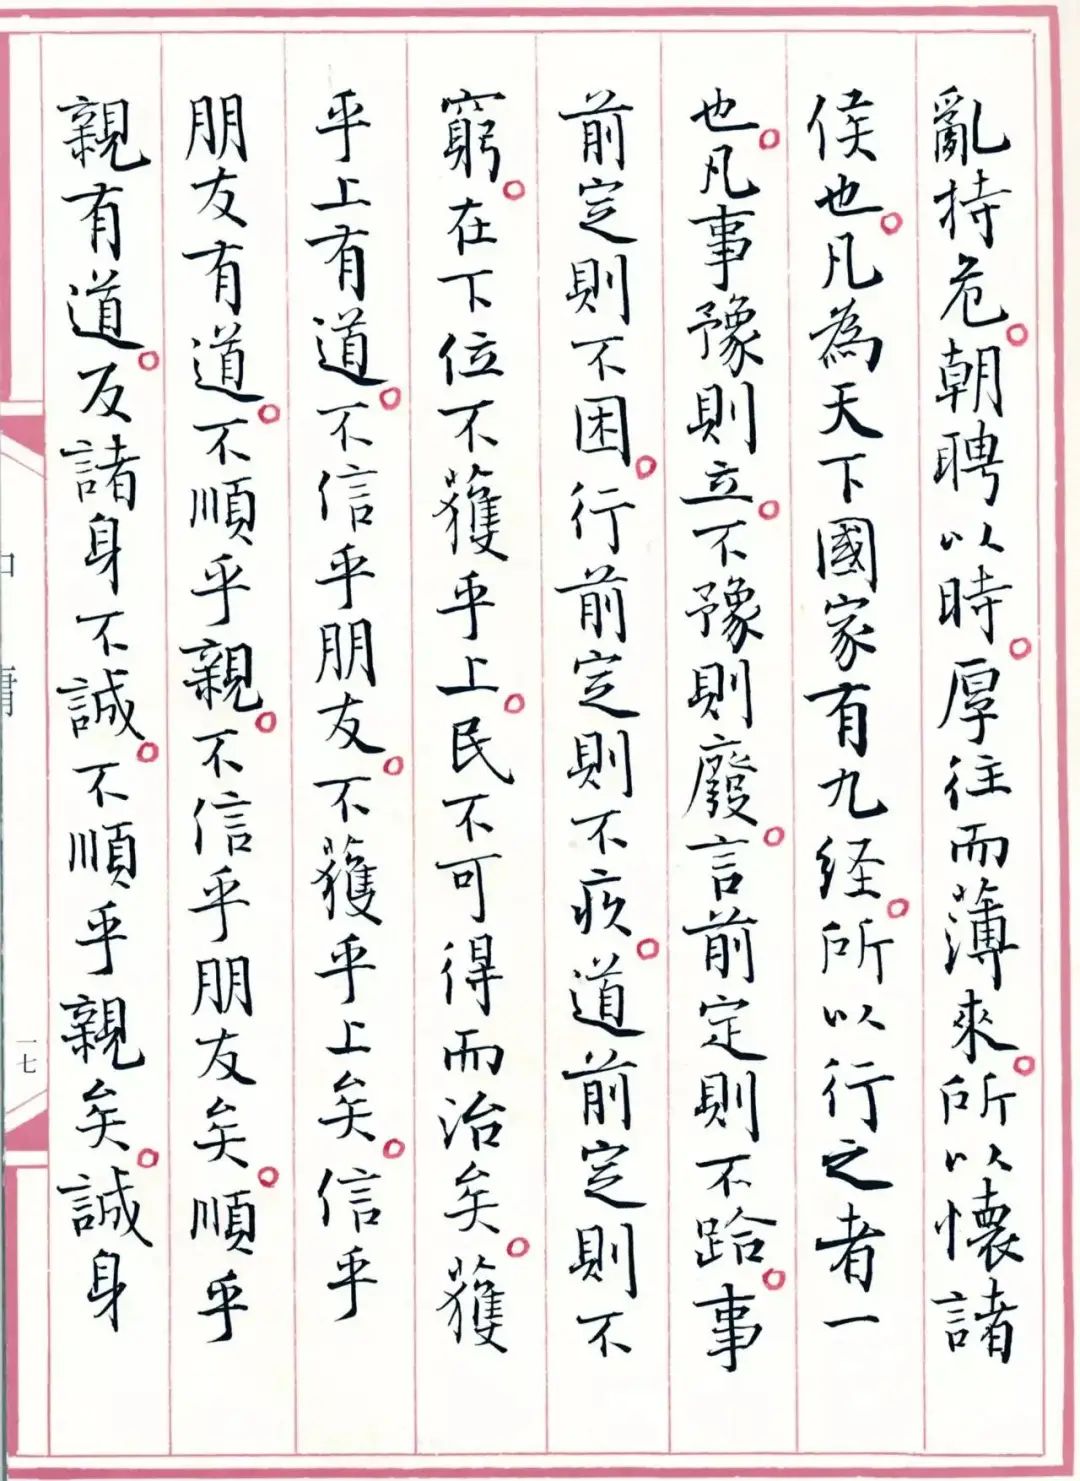 亂持危。朝聘以時。厚往而薄來。所以懷諸
侯也。凡為天下國家有九经。所以行之者一
也。凡事豫則立。不豫則廢。言前定則不跲。事
前定則不困。行前定則不疚。道前定則不
窮。在下位不獲乎上。民不可得而治矣。獲
乎上有道。不信乎朋友。不獲乎上矣。信乎
朋友有道。不順乎親。不信乎朋友矣。順乎
親有道。反諸身不誠。不順乎親矣。誠身
中庸
一七